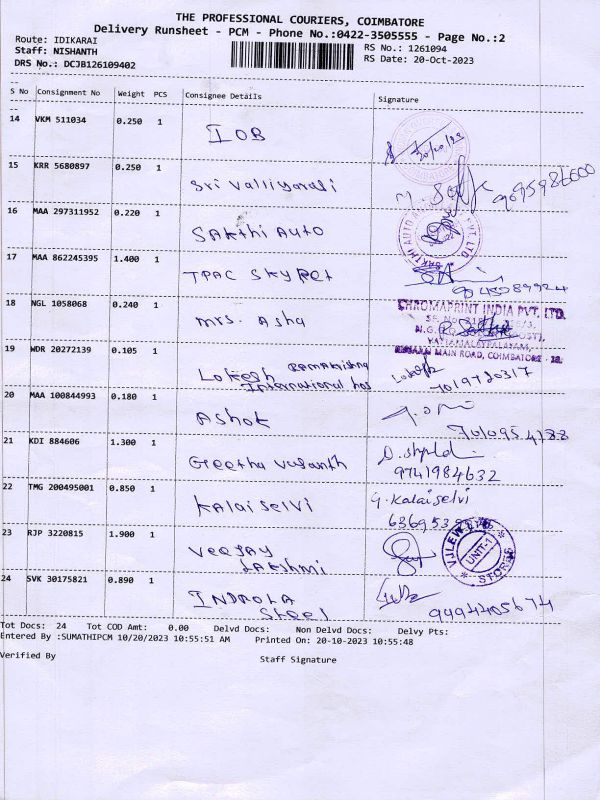 THE PROFESSIONAL COURIERS, COIMBATORE
Delivery Runsheet - PCM - Phone No.:0422-3505555 - Page No.:2
Route: IDIKARAI
RS No.: 1261094
Staff: NISHANTH
RS Date: 20-Oct-2023
DRS No.: DCJB126109402
S No Consignment No Weight PCS Consignee Details Signature
14 VKM 511034 0.250 1 IOB 20/10/23
15 KRR 5680897 0.250 1 Sri
16 MAA 297311952 0.220 1 SAKthi AUTO
SAKTHI AUTO PVT. LTD
17 MAA 862245395 1.400 1 TPAC SKYPET
18 NGL 1058068 0.240 1 mrs. Asha
CHROMAPRINT INDIA PVT. LTD.
MAIN ROAD, COIMBATORE
19 WDR 20272139 0.105 1 Lokesh
International
7019720317
20 MAA 100844993 0.180 1 Ashok
21 KDI 884606 1.300 1 Geetha
9741984632
22 TMG 200495001 0.850 1 Kalaiselvi G. Kalaiselvi
23 RJP 3220815 1.900 1 Veejay
Lakshmi
UNIT-1
STORES
24 SVK 30175821 0.890 1
Steel
9494405674
Tot Docs: 24 Tot COD Amt: 0.00 Delvd Docs: Non Delvd Docs: Delvy Pts:
Entered By :SUMATHIPCM 10/20/2023 10:55:51 AM Printed On: 20-10-2023 10:55:48
Verified By Staff Signature